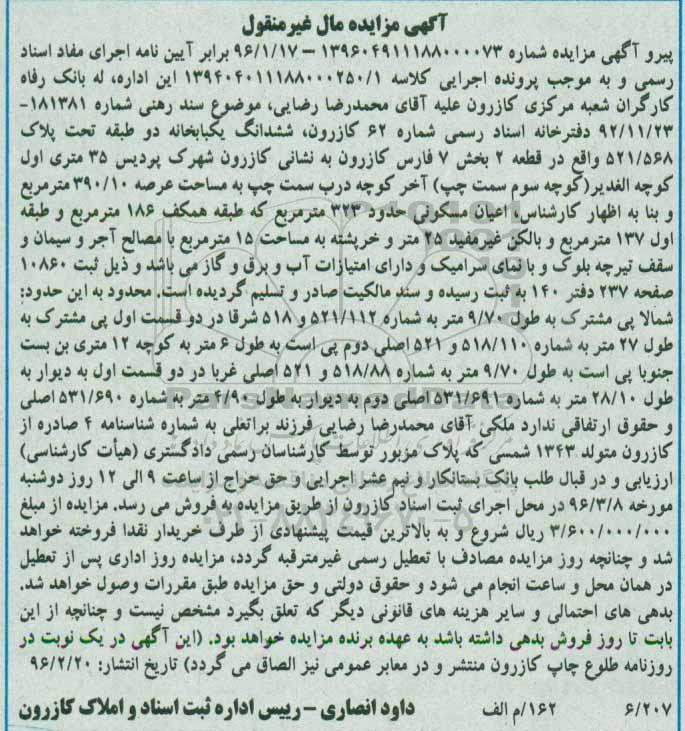 آگهی مزایده مال غیرمنقول
پیرو آگهی مزایده شماره ۱۳۹۶۰۴۹۱۱۱۸۸۰۰۰۰۷۳ – ۹۶/۱/۱۷ برابر آیین نامه اجرای مفاد اسناد
رسمی و به موجب پرونده اجرایی کلاسه ۱۳۹۴۰۴۰۱۱۱۸۸۰۰۰۲۵۰/۱ این اداره، له بانک رفاه
کارگران شعبه مرکزی کازرون علیه آقای محمدرضا رضایی، موضوع سند رهنی شماره ۱۸۱۳۸۱-
۹۲/۱۱/۲۳ دفترخانه اسناد رسمی شماره ۶۲ کازرون، ششدانگ یکبابخانه دو طبقه تحت پلاک
۵۲۱/۵۶۸ واقع در قطعه ۲ بخش ۷ فارس کازرون به نشانی کازرون شهرک پردیس ۳۵ متری اول
کوچه الغدیر(کوچه سوم سمت چپ) آخر کوچه درب سمت چپ به مساحت عرصه ۳۹۰/۱۰ مترمربع
و بنا به اظهار کارشناس، اعیان مسکونی حدود ۳۲۳ مترمربع که طبقه همکف ۱۸۶ مترمربع و طبقه
اول ۱۳۷ مترمربع و بالکن غیرمفید ۲۵ متر و خرپشته به مساحت ۱۵ مترمربع با مصالح آجر و سیمان و
سقف تیرچه بلوک و با نمای سرامیک و دارای امتیازات آب و برق و گاز می باشد و ذیل ثبت ۱۰۸۶۰
صفحه ۲۳۷ دفتر ۱۴۰ به ثبت رسیده و سند مالکیت صادر و تسلیم گردیده است. محدود به این حدود:
شمالا پی مشترک به طول ۹/۷۰ متر به شماره ۵۲۱/۱۱۲ و ۵۱۸ شرقا در دو قسمت اول پی مشترک به
طول ۲۷ متر به شماره ۵۱۸/۱۱۰ و ۵۲۱ اصلی دوم پی است به طول ۶ متر به کوچه ۱۲ متری بن بست
جنوبا پی است به طول ۹/۷۰ متر به شماره ۵۱۸/۸۸ و ۵۲۱ اصلی غربا در دو قسمت اول به دیوار به
طول ۲۸/۱۰ متر به شماره ۵۳۱/۶۹۱ اصلی دوم به دیوار به طول ۴/۹۰ متر به شماره ۵۳۱/۶۹۰ اصلی
و حقوق ارتفاقی ندارد ملکی آقای محمدرضا رضایی فرزند براتعلی به شماره شناسنامه ۴ صادره از
کازرون متولد ۱۳۴۳ شمسی که پلاک مزبور توسط کارشناسان رسمی دادگستری (هیأت کارشناسی)
ارزیابی و در قبال طلب بانک بستانکار و نیم عشر اجرایی و حق حراج از ساعت ۹ الی ۱۲ روز دوشنبه
مورخه ۹۶/۳/۸ در محل اجرای ثبت اسناد کازرون از طریق مزایده به فروش می رسد. مزایده از مبلغ
۳/۶۰۰/۰۰۰/۰۰۰ ریال شروع و به بالاترین قیمت پیشنهادی از طرف خریدار نقدا فروخته خواهد
شد و چنانچه روز مزایده مصادف با تعطیل رسمی غیرمترقبه گردد، مزایده روز اداری پس از تعطیل
در همان محل و ساعت انجام می شود و حقوق دولتی و حق مزایده طبق مقررات وصول خواهد شد.
بدهی های احتمالی و سایر هزینه های قانونی دیگر که تعلق بگیرد مشخص نیست و چنانچه از این
بابت تا روز فروش بدهی داشته باشد به عهده برنده مزایده خواهد بود. (این آگهی در یک نوبت در
روزنامه طلوع چاپ کازرون منتشر و در معابر عمومی نیز الصاق می گردد) تاریخ انتشار: ۹۶/۲/۲۰
۶/۲۰۷ ۱۶۲/م الف داود انصاری – رییس اداره ثبت اسناد و املاک کازرون
ParsNamadData